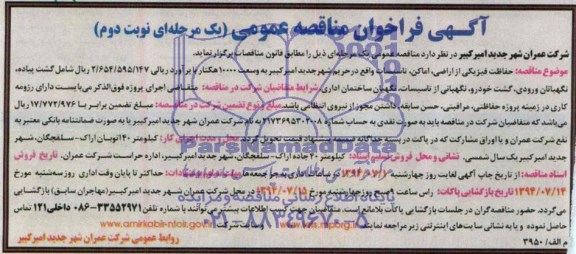 آگهی فراخوان مناقصه عمومی (یک مرحله‌ای نوبت دوم)
شرکت عمران شهر جدید امیرکبیر در نظر دارد مناقصه عمومی یک مرحله‌ای ذیل را مطابق قانون مناقصات برگزار نماید.
موضوع مناقصه: حفاظت فیزیکی از اراضی، اماکن، تاسیسات واقع در حریم شهر جدید امیرکبیر به وسعت ۱۰۰۰۰ هکتار با برآورد ریالی ۳/۶۵۴/۵۹۵/۱۴۷ ریال شامل گشت پیاده،
نگهبانان ورودی، گشت خودرو، نگهبانی از تاسیسات، نگهبان ساختمان اداری شرایط متقاضیان شرکت در مناقصه: متقاضی اجرای پروژه فوق‌الذکر می‌بایست دارای رزومه
کاری در زمینه پروژه حفاظتی، مراقبتی، حسن سابقه، داشتن مجوز از نیروی انتظامی باشد. مبلغ و نوع تضمین شرکت در مناقصه: مبلغ تضمین برابر با ۱۷/۷۷۳/۹۷۶ ریال
می‌باشد که متقاضیان شرکت در مناقصه باید به صورت نقدی به حساب شماره ۲۱۷۳۶۹۵۳۰۲۰۰۸ به نام شرکت عمران شهر جدید امیرکبیر یا به صورت ضمانتنامه بانکی معتبر به
نفع شرکت عمران و یا اوراق مشارکت که در پاکت دربسته جداگانه تحویل محل اجرای کار: کیلومتر ۴۰ اتوبان اراک- سلفچگان، شهر
جدید امیرکبیر یک سال شمسی. نشانی و محل فروش اسناد: کیلومتر ۴۰ جاده اراک- سلفچگان، شهر جدید امیرکبیر، اداره حراست شرکت عمران. تاریخ فروش
اسناد مناقصه: از تاریخ چاپ آگهی لغایت روز چهارشنبه حداکثر تا پایان وقت اداری روز سه‌شنبه مورخ
۱۳۹۴/۰۷/۱۴ تاریخ بازگشایی پاکات: راس ساعت ۹ صبح روز چهارشنبه مورخ ۱۳۹۴/۰۷/۱۵ در محل شرکت عمران شهر جدید امیرکبیر (مهاجران سابق) بازگشایی
می‌گردد. حضور مناقصه‌گران در جلسات بازگشایی پاکات بلامانع است. متقاضیان جهت کسب اطلاعات بیشتر می‌توانند با شماره تلفن ۳۳۵۵۲۹۷۱-۰۸۶ داخلی ۱۲۱ تماس
حاصل نموده و یا به نشانی سایت‌های اینترنتی زیر مراجعه نمایند. سایت شرکت www.amirkabir-ntok.gov.ir
م الف/ ۳۹۵۰ روابط عمومی شرکت عمران شهر جدید امیرکبیر
ParsNamadData
پایگاه اطلاع رسانی مناقصه و مزایده
۰۲۱-۸۸۳۴۹۶۷۰-۵